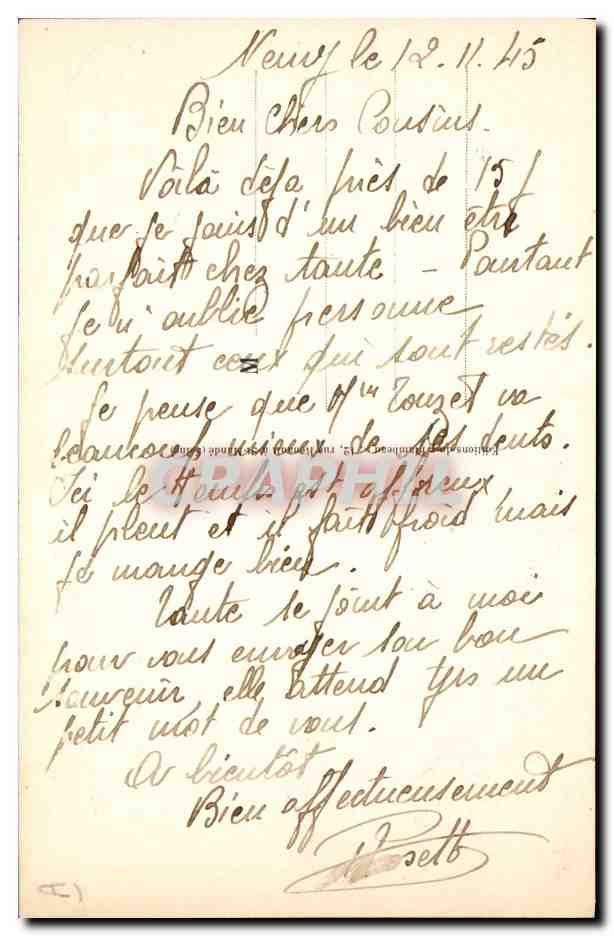 le 12.11.45
Bien chers Cousins.
Voilà déja près de 15 j
que je jouis d'un bien être
parfait chez tante – Pourtant
je n'oublie personne
surtout ceux qui sont restés.
Je pense que Mme Touzet va
beaucoup mieux de ses dents.
Ici le temps est affreux
il pleut et il fait froid mais
je mange bien.
Tante se joint à moi
pour vous envoyer son bon
souvenir, elle attend tjrs un
petit mot de vous.
A bientôt
Bien affectueusement
M
12, rue
CPARAMA
A)